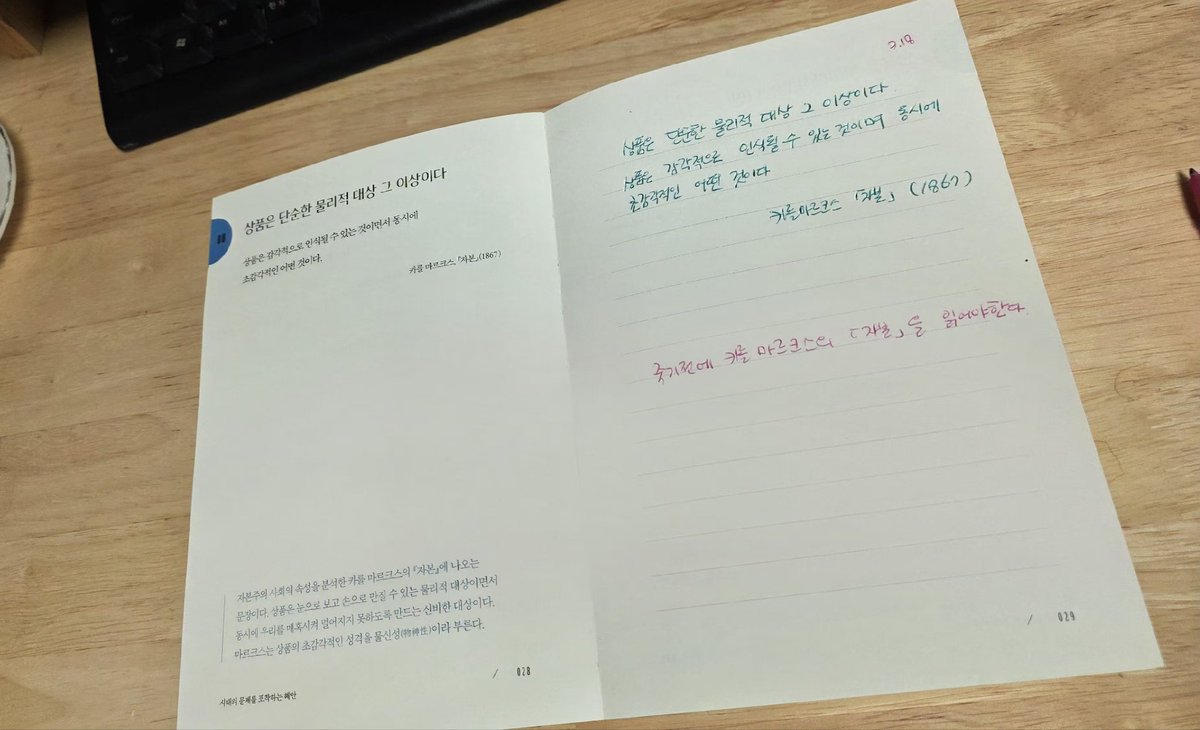 상품은 단순한 물리적 대상 그 이상이다
상품은 감각적으로 인식될 수 있는 것이면서 동시에
초감각적인 어떤 것이다.
카를 마르크스, 『자본』(1867)
자본주의 사회의 속성을 분석한 카를 마르크스의 『자본』에 나오는
문장이다. 상품은 눈으로 보고 손으로 만질 수 있는 물리적 대상이면서
동시에 우리를 매혹시켜 떨어지지 못하도록 만드는 신비한 대상이다.
마르크스는 상품의 초감각적인 성격을 물신성(物神性)이라 부른다.
/ 028
시대의 문제를 포착하는 혜안
2.18
상품은 단순한 물리적 대상 그 이상이다
상품은 감각적으로 인식될 수 있는 것이며 동시에
초감각적인 어떤 것이다
카를마르크스 「자본」 (1867)
죽기전에 카를 마르크스의 「자본」을 읽어야한다.
/ 029